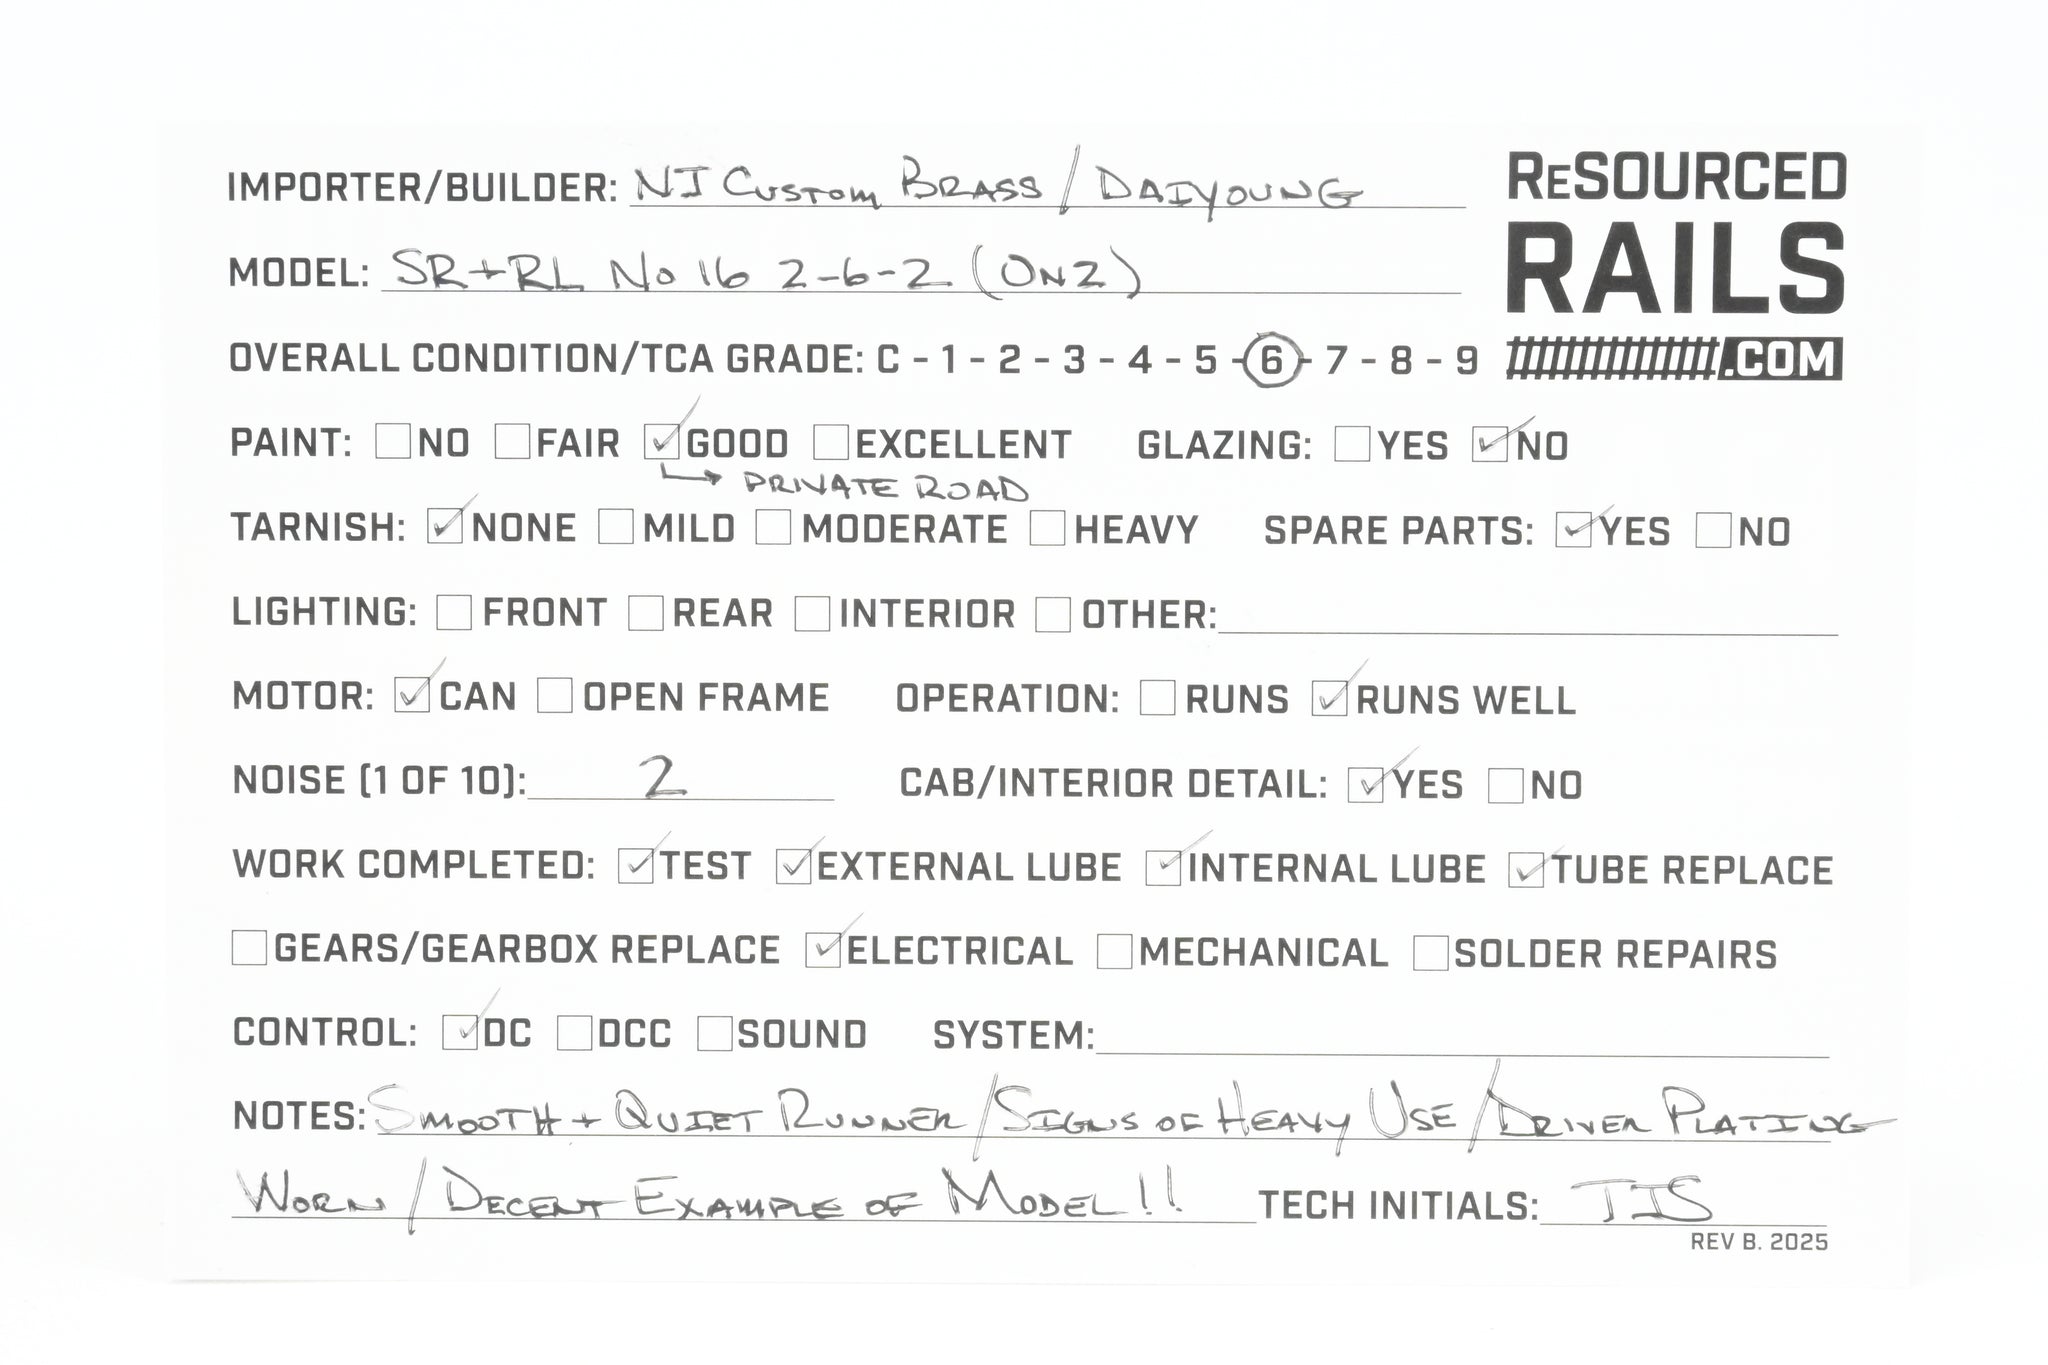 IMPORTER/BUILDER: NJ CUSTOM BRASS / DAIYOUNG
ReSOURCED
RAILS
.COM
MODEL: SR+RL No 16 2-6-2 (ON2)
OVERALL CONDITION/TCA GRADE: C - 1 - 2 - 3 - 4 - 5 - 6 - 7 - 8 - 9
PAINT: NO FAIR GOOD EXCELLENT GLAZING: YES NO
PRIVATE ROAD
TARNISH: NONE MILD MODERATE HEAVY SPARE PARTS: YES NO
LIGHTING: FRONT REAR INTERIOR OTHER:
MOTOR: CAN OPEN FRAME OPERATION: RUNS RUNS WELL
NOISE (1 OF 10): 2 CAB/INTERIOR DETAIL: YES NO
WORK COMPLETED: TEST EXTERNAL LUBE INTERNAL LUBE TUBE REPLACE
GEARS/GEARBOX REPLACE ELECTRICAL MECHANICAL SOLDER REPAIRS
CONTROL: DC DCC SOUND SYSTEM:
NOTES: SMOOTH + QUIET RUNNER / SIGNS OF HEAVY USE / DRIVER PLATING
WORN / DECENT EXAMPLE OF MODEL!! TECH INITIALS: TJS
REV B. 2025